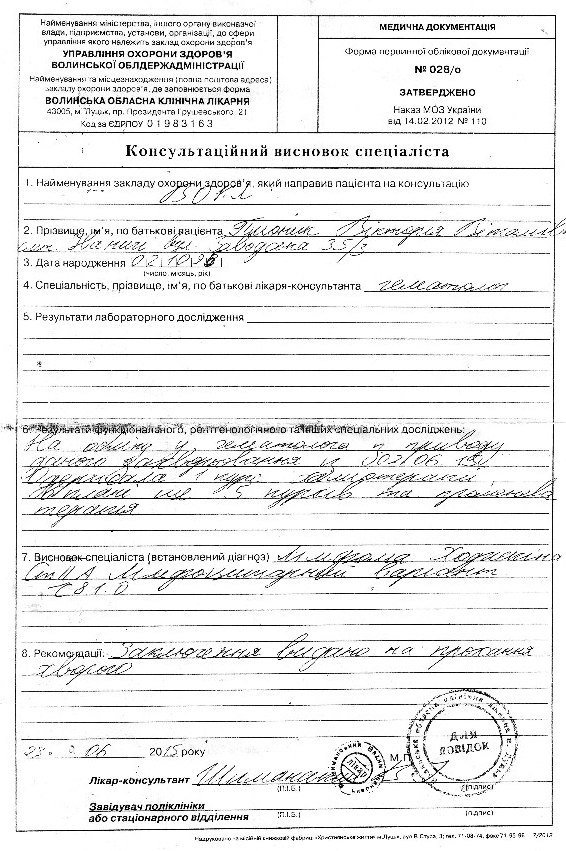 Найменування міністерства, іншого органу виконачої
влади, підприємства, установи, організації, до сфери
управління якого належить заклад охорони здоров'я
УПРАВЛІННЯ ОХОРОНИ ЗДОРОВ'Я
ВОЛИНСЬКОЇ ОБЛДЕРЖАДМІНІСТРАЦІЇ
Найменування та місцезнаходження (повна поштова адреса)
закладу охорони здоров'я, де заповнюється форма
ВОЛИНСЬКА ОБЛАСНА КЛІНІЧНА ЛІКАРНЯ
43005, м. Луцьк, пр. Президента Грушевського, 21
Код за ЄДРПОУ 01983163
МЕДИЧНА ДОКУМЕНТАЦІЯ
Форма первинної облікової документації
№ 028/о
ЗАТВЕРДЖЕНО
Наказ МОЗ України
від 14.02.2012 № 110
Консультаційний висновок спеціаліста
1. Найменування закладу охорони здоров'я, який направив пацієнта на консультацію
ВОКЛ
2. Прізвище, ім'я, по батькові пацієнта Вікторія
Заводська 35/3
3. Дата народження 02 10
(число, місяць, рік)
4. Спеціальність, прізвище, ім'я, по батькові лікаря-консультанта гематолог
5. Результати лабораторного дослідження
6. Результати функціонального, рентгенологічного та інших спеціальних досліджень:
На обліку у гематолога п приводу
даного захворювання з
Одержала 1 курс хіміотерапії
ще 5 курсів та променева
терапія
7. Висновок спеціаліста (встановлений діагноз) Лімфома Ходжкіна
Ст II А Лімфоцитарний варіант
С 81.0
8. Рекомендації: Заключення видано на прохання
хворого
06 2015 року
М.П.
ДЛЯ
ДОВІДОК
ЛІКАР
Лікар-консультант
(П.І.Б.) (підпис)
Завідувач поліклініки
або стаціонарного відділення
(П.І.Б.) (підпис)